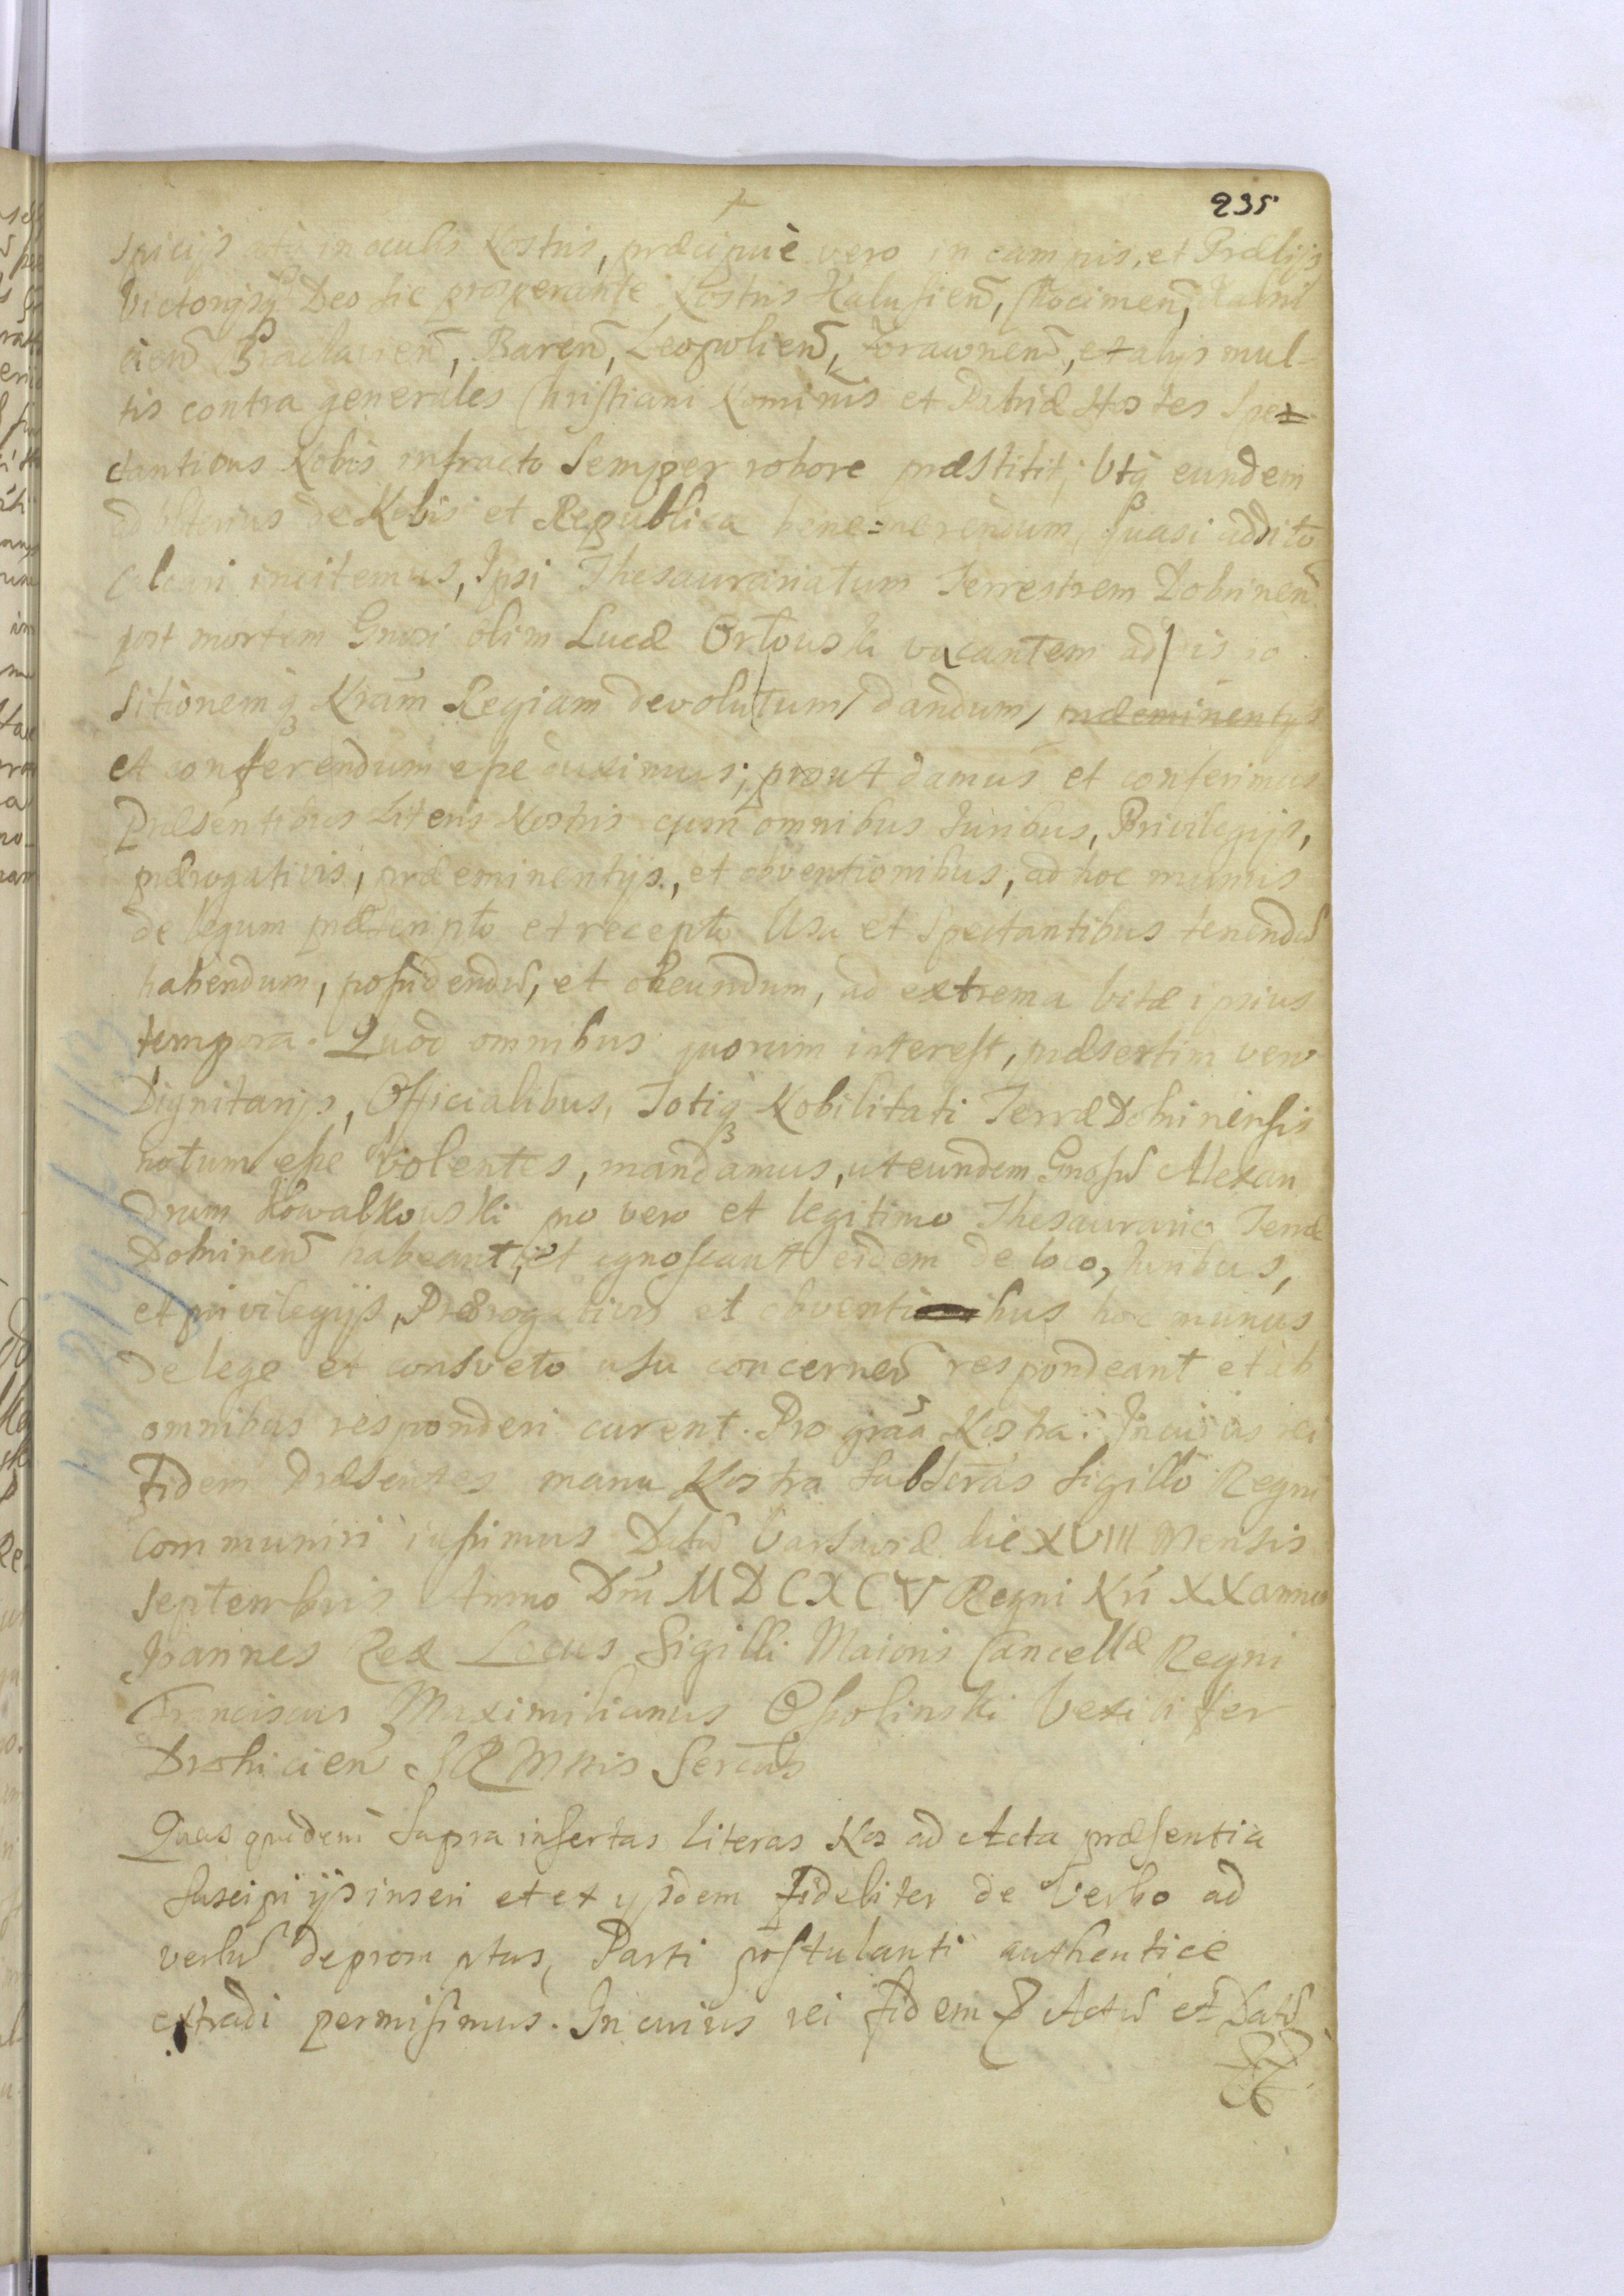 235
spicijs atq in oculis Nostris, præcipuè vero in campis, et Prælijs
Victorijsq Deo sic prosperante Nostris Kalusien, Chocimen, Kalni
cien Braclavien, Baren, Leopolien, Zorawnen, et alijs mul-
tis contra generales Christiani Nominis et Patriæ Hostes Spe
ctantibus Nobis infracto Semper robore præstitit, Utq eundem
ad ulterius de Nobis et Republica bene=merendum, quasi addito
calcari incitemus, Ipsi Thesaurariatum Terrestrem Dobrinen
post mortem Gnosi olim Lucæ Orłowski vacantem ad dispo
sitionemq Nram Regiam devolutum, dandum, præeminentijs
et conferendum esse duximus; prout damus et conferimus
Præsentibus Literis Nostris cum omnibus Iuribus, Privilegijs,
prærogativis, præeminentijs, et obventionibus, ad hoc munus
de legum præscripto et recepto Usu et Spectantibus tenendu
habendum, possidendu, et obeundum, ad extrema vitæ ipsius
tempora. Quod omnibus quorum interest, præsertim vero
Dignitarijs, Officialibus, Totiq Nobilitati Terræ Dobrinensis
notum esse volentes, mandamus, ut eundem Gnosu Alexan
drum Kowalkowski pro vero et legitimo Thesaurario Terræ
Dobrinen habeant, et agnoscant eidem de loco, Iuribus,
et privilegijs, Prærogativis et obventionibus hoc munus
de lege et consveto usu concernen respondeant et ab
omnibus responderi curent. Pro graa Nostra. In cuius rei
Fidem Præsentes manu Nostra Subscras Sigillo Regni
communiri iussimus Datu Varsaviæ die XVIII Mensis
Septembris Anno Dni MDCXCV Regni Nri XX anno
Joannes Rex Locus Sigilli Maioris Cancellæ Regni
Franciscus Maximilianus Ossolinski Vexilifer
Drohicien S R Mttis Secrius
Quas quidem Supra insertas literas Nos ad Acta præsentia
Suscipi ijs inseri et ex ijsdem Fideliter de Verbo ad
verbu depromptas, Parti postulanti authentice
extradi permisimus. In cuius rei fidem Actu et Datu